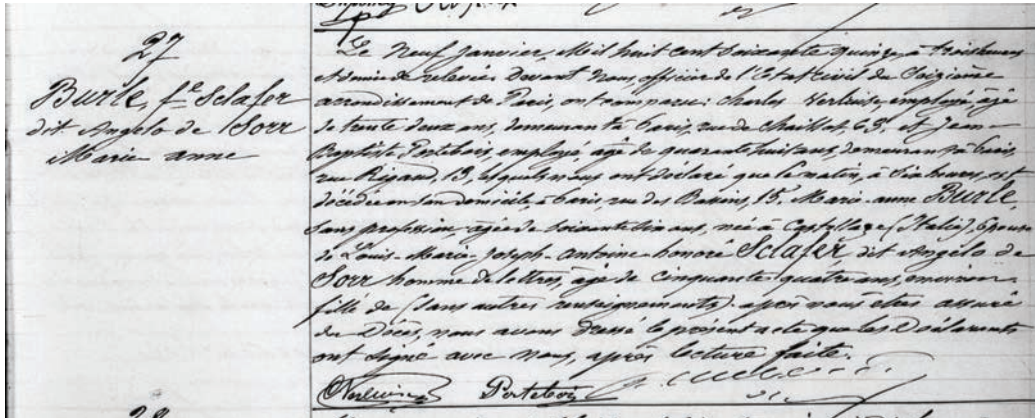 27
Burle, fe Sclafer
dit Angelo de Sorr
Marie anne
Le Neuf Janvier, Mil huit cent soixante quinze, à trois heures
et demie de relevée, Devant Nous, officier de l'Etat civil du Seizième
arrondissement de Paris, ont comparu: Charles Verluise, employé, âgé
de trente deux ans, demeurant à Paris, rue de Chaillot, 63. et Jean
Baptiste Portebois, employé, âgé de quarante huit ans, demeurant à Paris
rue 13, lesquels nous ont déclaré que le matin, à six heures, est
décédée en son domicile, à Paris, rue des Bassins, 15. Marie-anne Burle,
sans profession, âgée de soixante ans, née à (Italie), épouse
de Louis-Marie-Joseph-Antoine-honoré Sclafer, dit Angelo de
Sorr homme de lettres, âgé de cinquante quatre ans,
fille de (sans autres renseignements). après nous être assuré
du Décès, nous avons dressé le présent acte que les Déclarants
ont signé avec Nous, après lecture faite.
Verluise Portebois
28